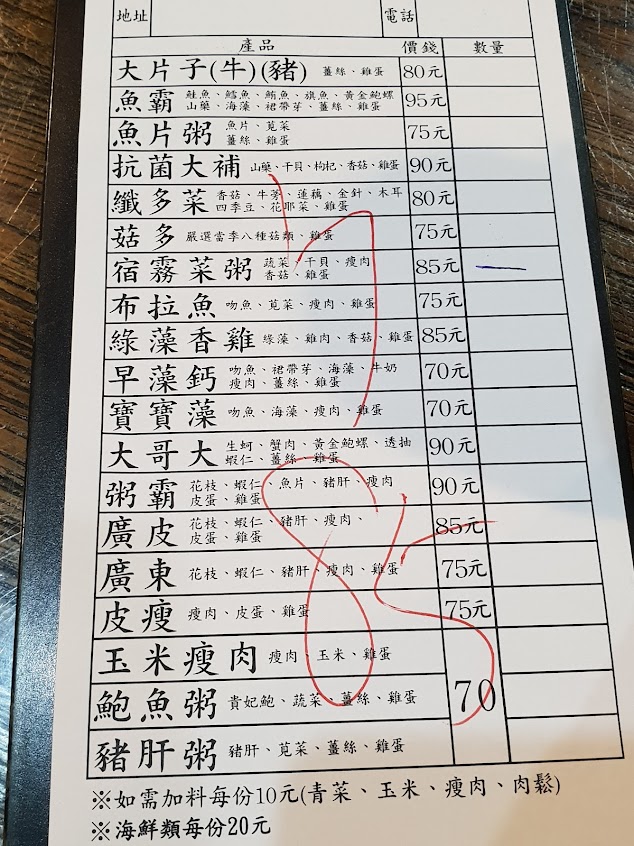 地址 電話
產品 價錢 數量
大片子(牛)(豬) 薑絲、雞蛋 80元
魚霸 鮭魚、鱈魚、鮪魚、旗魚、黃金鮑螺 95元
山藥、海藻、裙帶芽、薑絲、雞蛋
魚片粥 魚片、莧菜 75元
薑絲、雞蛋
抗菌大補 山藥、干貝、枸杞、香菇、雞蛋 90元
纖多菜 香菇、牛蒡、蓮藕、金針、木耳 80元
四季豆、花耶菜、雞蛋
菇多 嚴選當季八種菇類、雞蛋 75元
宿霧菜粥 蔬菜、干貝、瘦肉 85元
香菇、雞蛋
布拉魚 吻魚、莧菜、瘦肉、雞蛋 75元
綠藻香雞 綠藻、雞肉、香菇、雞蛋 85元
早藻鈣 吻魚、裙帶芽、海藻、牛奶 70元
瘦肉、薑絲、雞蛋
寶寶藻 吻魚、海藻、瘦肉、雞蛋 70元
大哥大 生蚵、蟹肉、黃金鮑螺、透抽 90元
蝦仁、薑絲、雞蛋
粥霸 花枝、蝦仁、魚片、豬肝、瘦肉 90元
皮蛋、雞蛋
廣皮 花枝、蝦仁、豬肝、瘦肉、 85元
皮蛋、雞蛋
廣東 花枝、蝦仁、豬肝、瘦肉、雞蛋 75元
皮瘦 瘦肉、皮蛋、雞蛋 75元
玉米瘦肉 瘦肉、玉米、雞蛋
鮑魚粥 貴妃鮑、蔬菜、薑絲、雞蛋 70
豬肝粥 豬肝、莧菜、薑絲、雞蛋
※如需加料每份10元(青菜、玉米、瘦肉、肉鬆)
※海鮮類每份20元
85